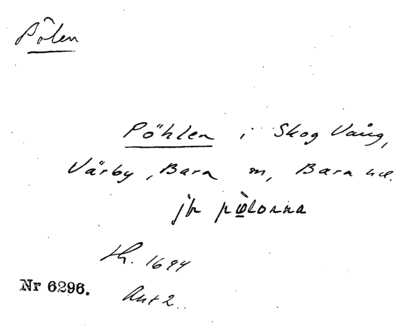 Pölen
Pöhlen i Skog Vång,
Värby, Bara m, Bara hd.
jfr pölorna
Lh. 1694
Nr 6296. Akt 2.